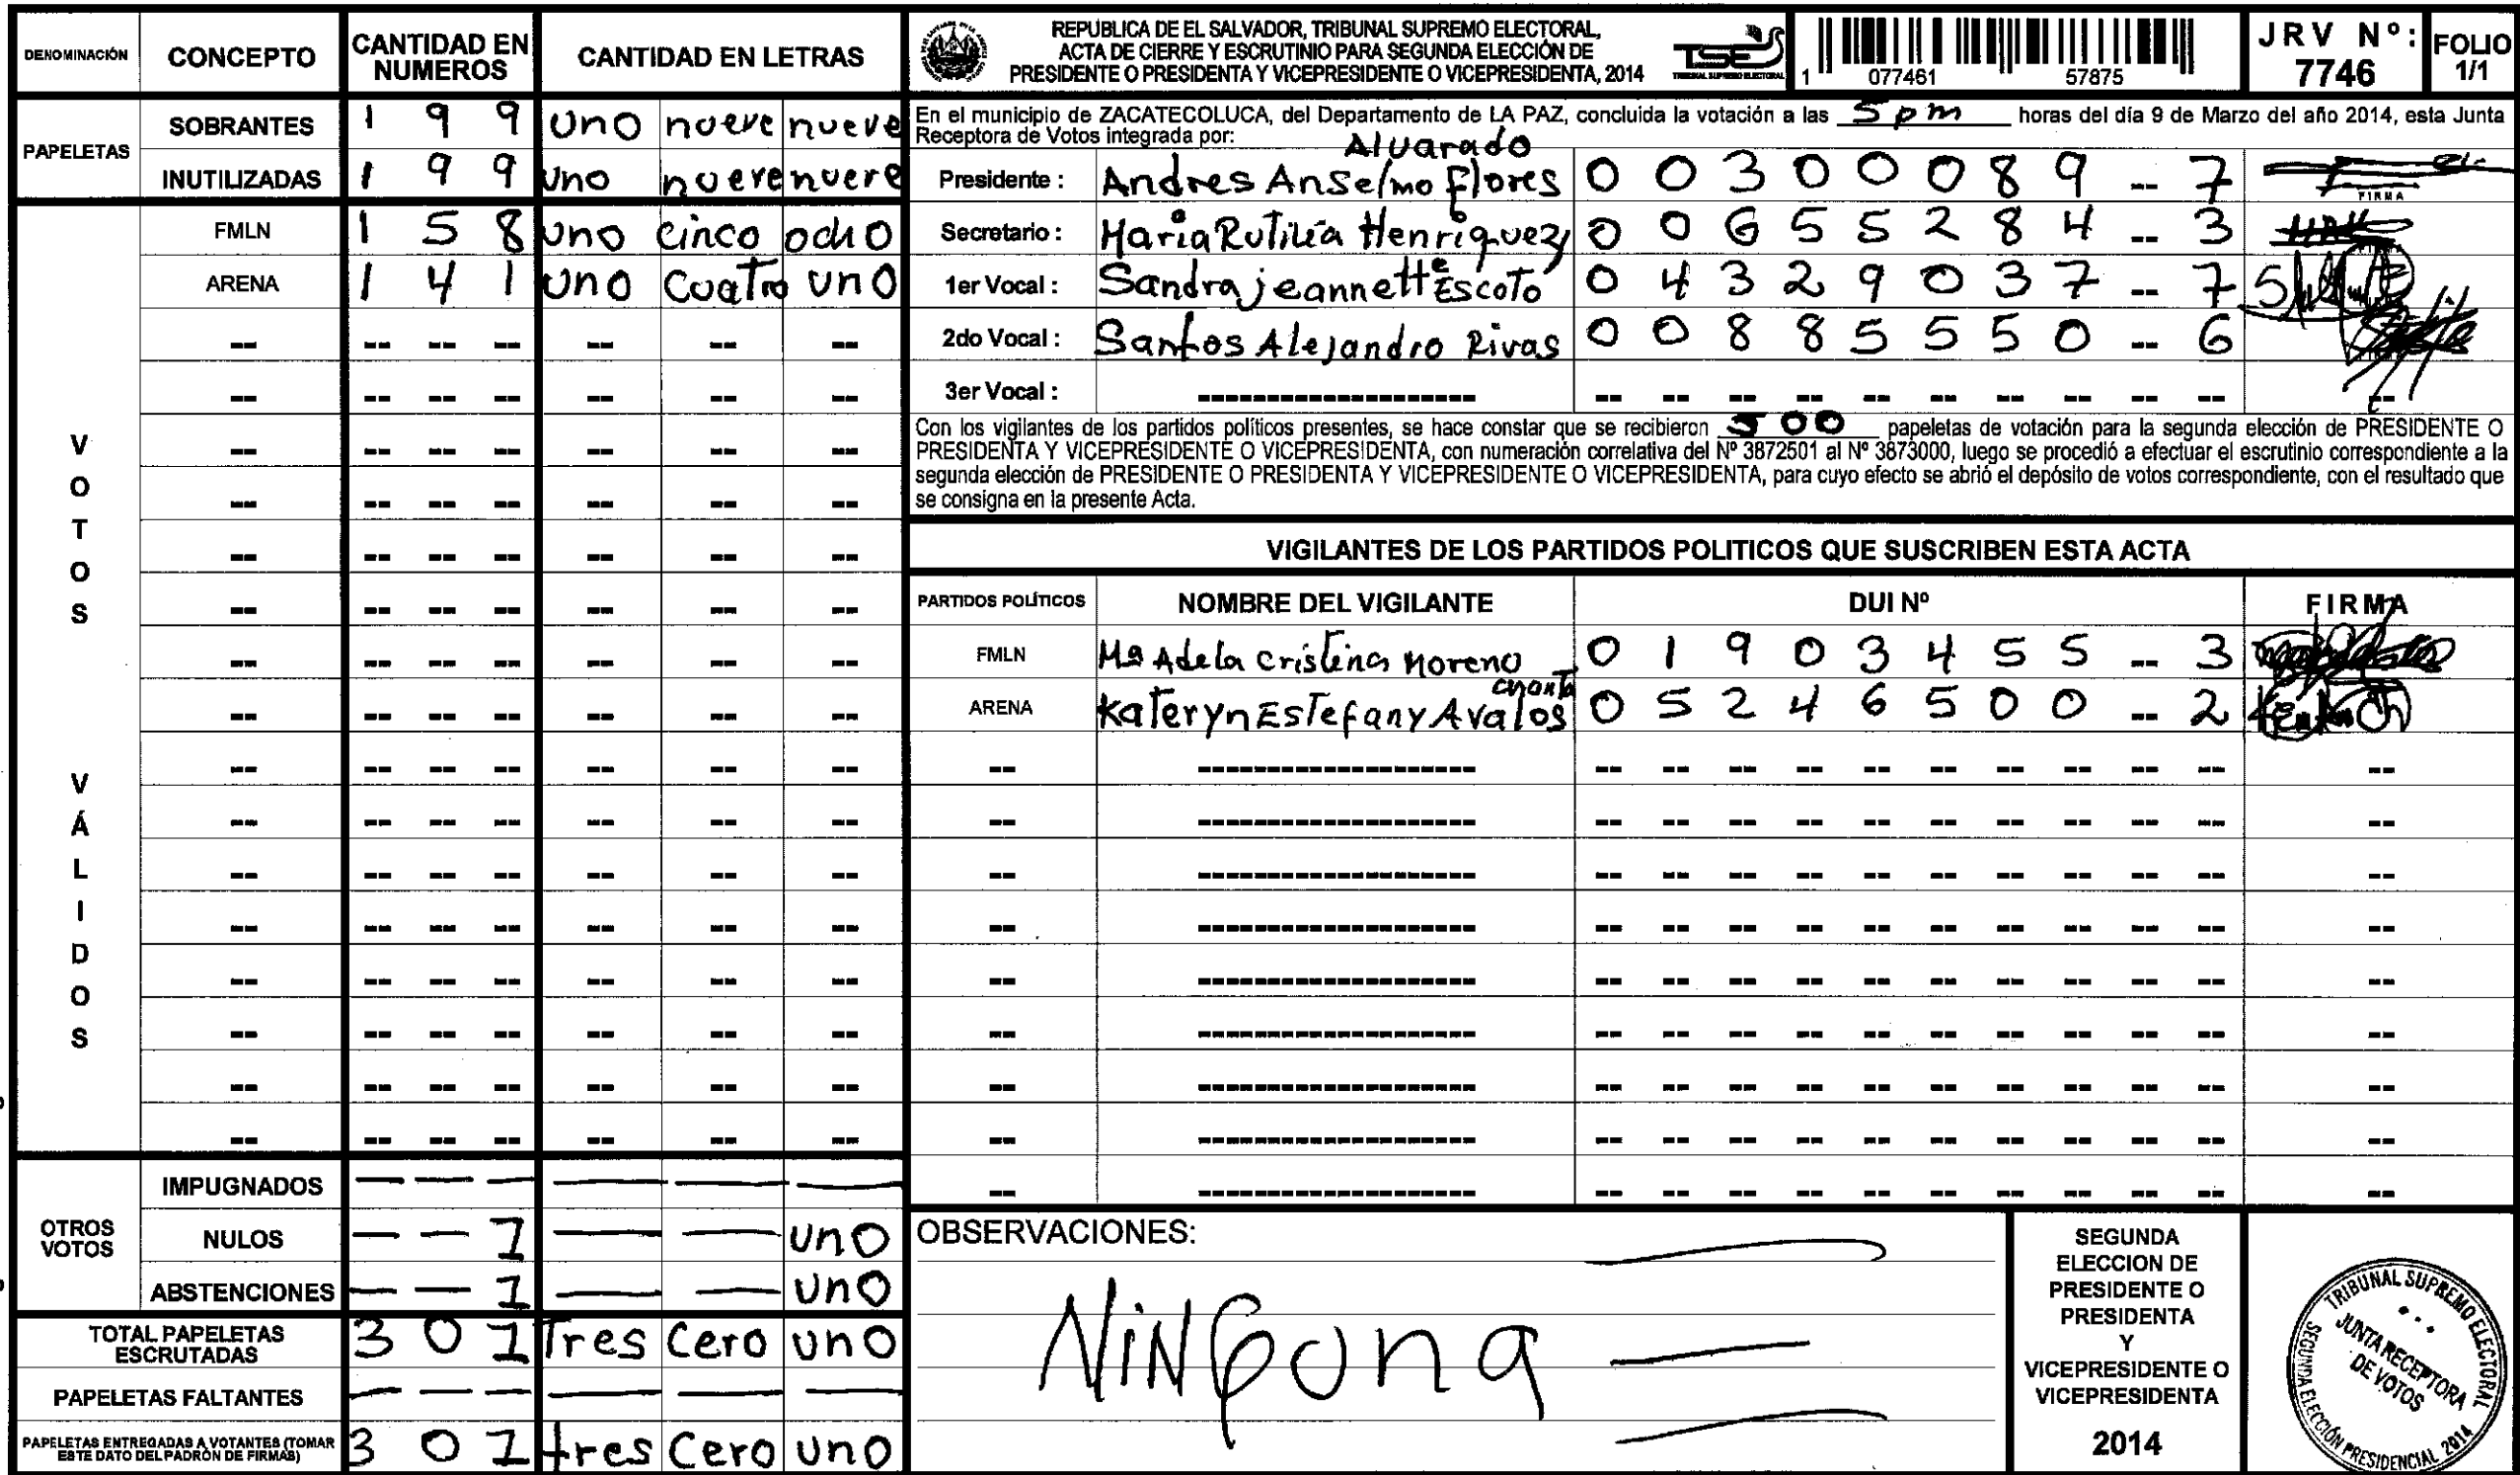 DENOMINACIÓN CONCEPTO CANTIDAD EN NUMEROS CANTIDAD EN LETRAS
PAPELETAS
SOBRANTES 1 9 9 uno nueve nueve
INUTILIZADAS 1 9 9 uno nueve nueve
VOTOS VÁLIDOS
FMLN 1 5 8 uno cinco ocho
ARENA 1 4 1 uno cuatro uno
OTROS VOTOS
IMPUGNADOS — — — — — —
NULOS — — 1 — — uno
ABSTENCIONES — — 1 — — uno
TOTAL PAPELETAS ESCRUTADAS 3 0 1 Tres cero uno
PAPELETAS FALTANTES — — — — — —
PAPELETAS ENTREGADAS A VOTANTES (TOMAR ESTE DATO DEL PADRÓN DE FIRMAS) 3 0 1 tres cero uno
REPUBLICA DE EL SALVADOR, TRIBUNAL SUPREMO ELECTORAL,
ACTA DE CIERRE Y ESCRUTINIO PARA SEGUNDA ELECCIÓN DE
PRESIDENTE O PRESIDENTA Y VICEPRESIDENTE O VICEPRESIDENTA, 2014
TSE
TRIBUNAL SUPREMO ELECTORAL
1 077461 57875
JRV Nº: 7746
FOLIO 1/1
En el municipio de ZACATECOLUCA, del Departamento de LA PAZ, concluida la votación a las 5 pm horas del día 9 de Marzo del año 2014, esta Junta
Receptora de Votos integrada por:
Presidente : Andres Anselmo Flores Alvarado 0 0 3 0 0 0 8 9 -- 7
FIRMA
Secretario : Maria Rutilia Henriquez 0 0 6 5 5 2 8 4 -- 3
1er Vocal : Sandra jeannette Escoto 0 4 3 2 9 0 3 7 -- 7
2do Vocal : Santos Alejandro Rivas 0 0 8 8 5 5 5 0 -- 6
3er Vocal :
Con los vigilantes de los partidos políticos presentes, se hace constar que se recibieron 500 papeletas de votación para la segunda elección de PRESIDENTE O
PRESIDENTA Y VICEPRESIDENTE O VICEPRESIDENTA, con numeración correlativa del Nº 3872501 al Nº 3873000, luego se procedió a efectuar el escrutinio correspondiente a la
segunda elección de PRESIDENTE O PRESIDENTA Y VICEPRESIDENTE O VICEPRESIDENTA, para cuyo efecto se abrió el depósito de votos correspondiente, con el resultado que
se consigna en la presente Acta.
VIGILANTES DE LOS PARTIDOS POLITICOS QUE SUSCRIBEN ESTA ACTA
PARTIDOS POLÍTICOS NOMBRE DEL VIGILANTE DUI Nº FIRMA
FMLN Mª Adela Cristina Moreno 0 1 9 0 3 4 5 5 -- 3
ARENA Kateryn Estefany Avalos 0 5 2 4 6 5 0 0 -- 2
OBSERVACIONES:
Ninguna
SEGUNDA
ELECCION DE
PRESIDENTE O
PRESIDENTA
Y
VICEPRESIDENTE O
VICEPRESIDENTA
2014
TRIBUNAL SUPREMO ELECTORAL
JUNTA RECEPTORA
DE VOTOS
SEGUNDA ELECCIÓN PRESIDENCIAL 2014